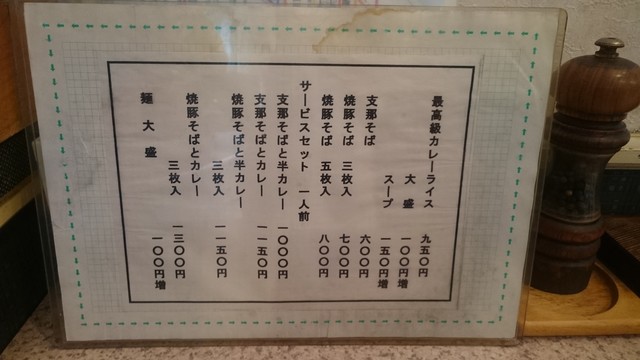 最高級カレーライス 九五〇円
大盛 一〇〇円増
スープ 一五〇円増
支那そば 六〇〇円
焼豚そば 三枚入 七〇〇円
焼豚そば 五枚入 八〇〇円
サービスセット 一人前
支那そばと半カレー 一〇〇〇円
支那そばとカレー 一一五〇円
焼豚そばと半カレー
三枚入 一一五〇円
焼豚そばとカレー
三枚入 一三〇〇円
麺大盛 一〇〇円増